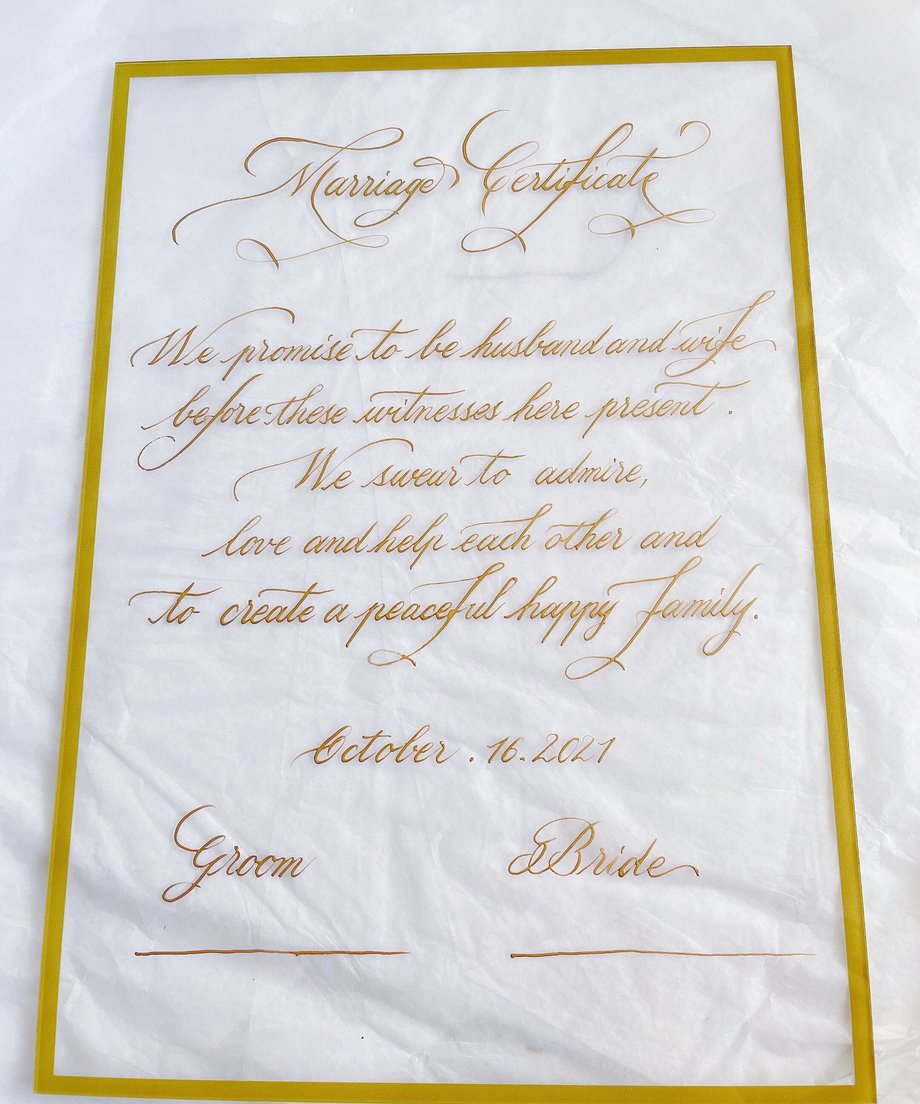 Marriage Certificate
We promise to be husband and wife
before these witnesses here present.
We swear to admire,
love and help each other and
to create a peaceful happy family.
October. 16. 2021
Groom Bride